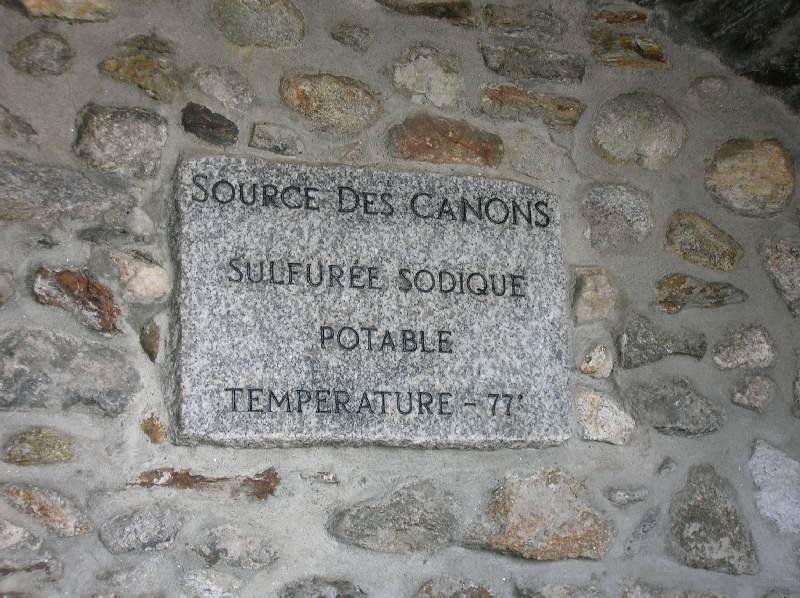 SOURCE DES CANONS
SULFURÉE SODIQUE
POTABLE
TEMPERATURE - 77°